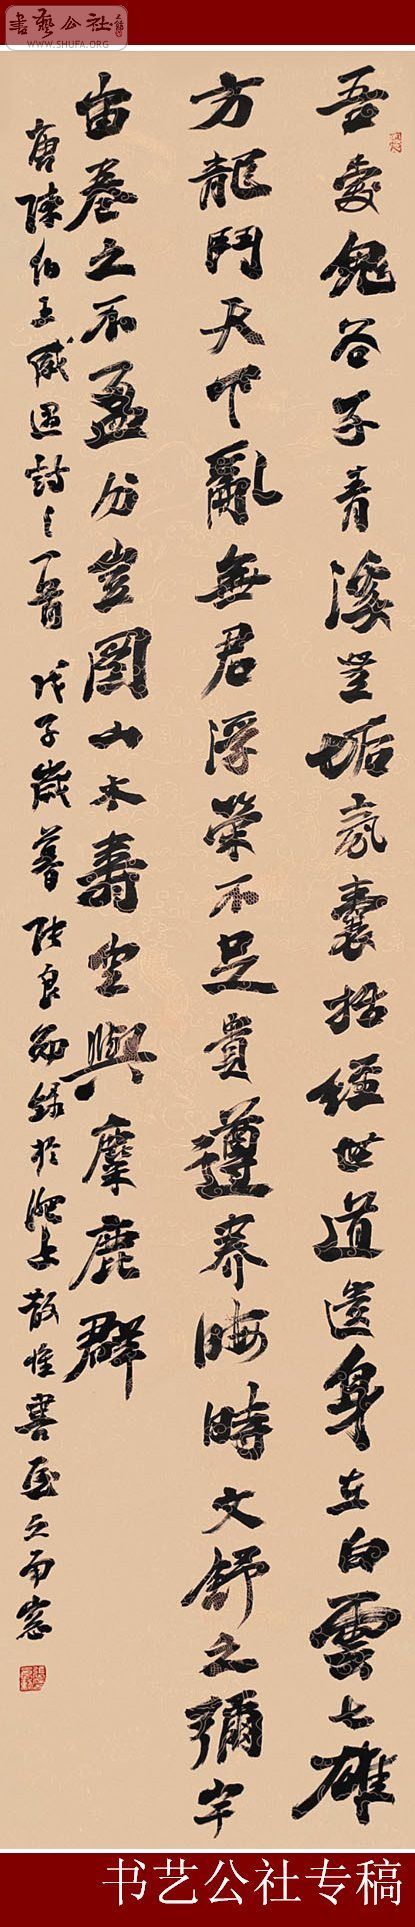 書藝公社
WWW.SHUFA.ORG
吾愛鬼谷子青溪無垢氛囊括經世道遺身在白雲七雄
方龍鬥天下亂無君浮榮不足貴遵養晦時文舒之彌宇
宙卷之不盈分豈圖山木壽空與麋鹿群
唐陳伯玉感遇詩之一首戊子歲暮張良勋錄於淝上散懷書屋之南窗
书艺公社专稿